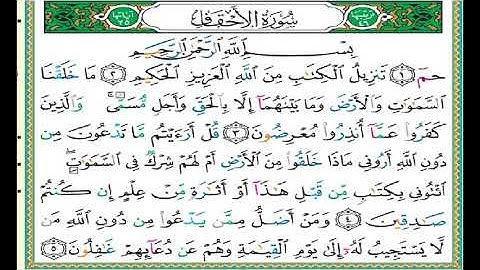 ترتيبها ٤٦ سُورَةُ الْأَحْقَافِ آياتها ٣٥
بِسْمِ اللَّهِ الرَّحْمَٰنِ الرَّحِيمِ
حمٓ ۝١ تَنزِيلُ الْكِتَابِ مِنَ اللَّهِ الْعَزِيزِ الْحَكِيمِ ۝٢ مَا خَلَقْنَا
السَّمَاوَاتِ وَالْأَرْضَ وَمَا بَيْنَهُمَآ إِلَّا بِالْحَقِّ وَأَجَلٍ مُّسَمًّى ۚ وَالَّذِينَ
كَفَرُوا عَمَّآ أُنذِرُوا مُعْرِضُونَ ۝٣ قُلْ أَرَءَيْتُم مَّا تَدْعُونَ مِن
دُونِ اللَّهِ أَرُونِي مَاذَا خَلَقُوا مِنَ الْأَرْضِ أَمْ لَهُمْ شِرْكٌ فِي السَّمَاوَاتِ ۖ
ائْتُونِي بِكِتَابٍ مِّن قَبْلِ هَٰذَآ أَوْ أَثَارَةٍ مِّنْ عِلْمٍ إِن كُنتُمْ
صَادِقِينَ ۝٤ وَمَنْ أَضَلُّ مِمَّن يَدْعُوا مِن دُونِ اللَّهِ مَن
لَّا يَسْتَجِيبُ لَهُٓ إِلَىٰ يَوْمِ الْقِيَامَةِ وَهُمْ عَن دُعَآئِهِمْ غَافِلُونَ ۝٥